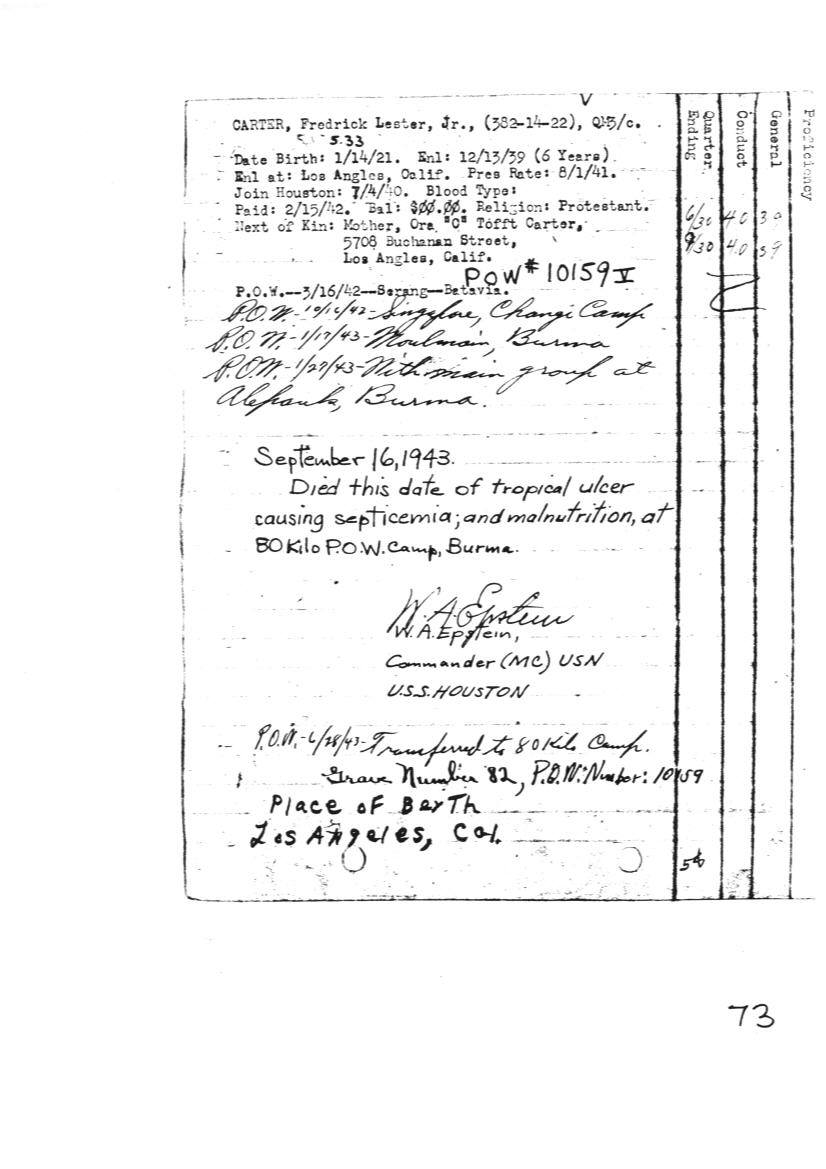 V
CARTER, Fredrick Lester, Jr., (382-14-22), QM3/c.
5.33
Date Birth: 1/14/21. Enl: 12/13/39 (6 Years).
Enl at: Los Angles, Calif. Pres Rate: 8/1/41.
Join Houston: 7/4/40. Blood Type:
Paid: 2/15/42. Bal: $00.00. Religion: Protestant.
Next of Kin: Mother, Ora "C" Tofft Carter,
5708 Buchanan Street,
Los Angles, Calif.
POW# 10159 V
P.O.W.--3/16/42--Serang--Batavia.
P.O.W.-10/16/42-Singapore, Changi Camp
P.O.W.-1/17/43-Moulmain, Burma
P.O.W.-1/27/43-With main group at
Alepauk, Burma.
September 16, 1943.
Died this date of tropical ulcer
causing septicemia; and malnutrition, at
80 Kilo P.O.W. Camp, Burma.
W.A. Epstein
W.A. Epstein,
Commander (MC) USN
U.S.S. HOUSTON
P.O.W.-6/28/43-Transferred to 80 Kilo Camp.
Grave Number 82, P.O.W. Number: 10159
Place of BerTh
Los Angeles, Cal.
Quarter Ending
Conduct
General
Proficiency
6/30 4.0 39
9/30 4.0 39
73